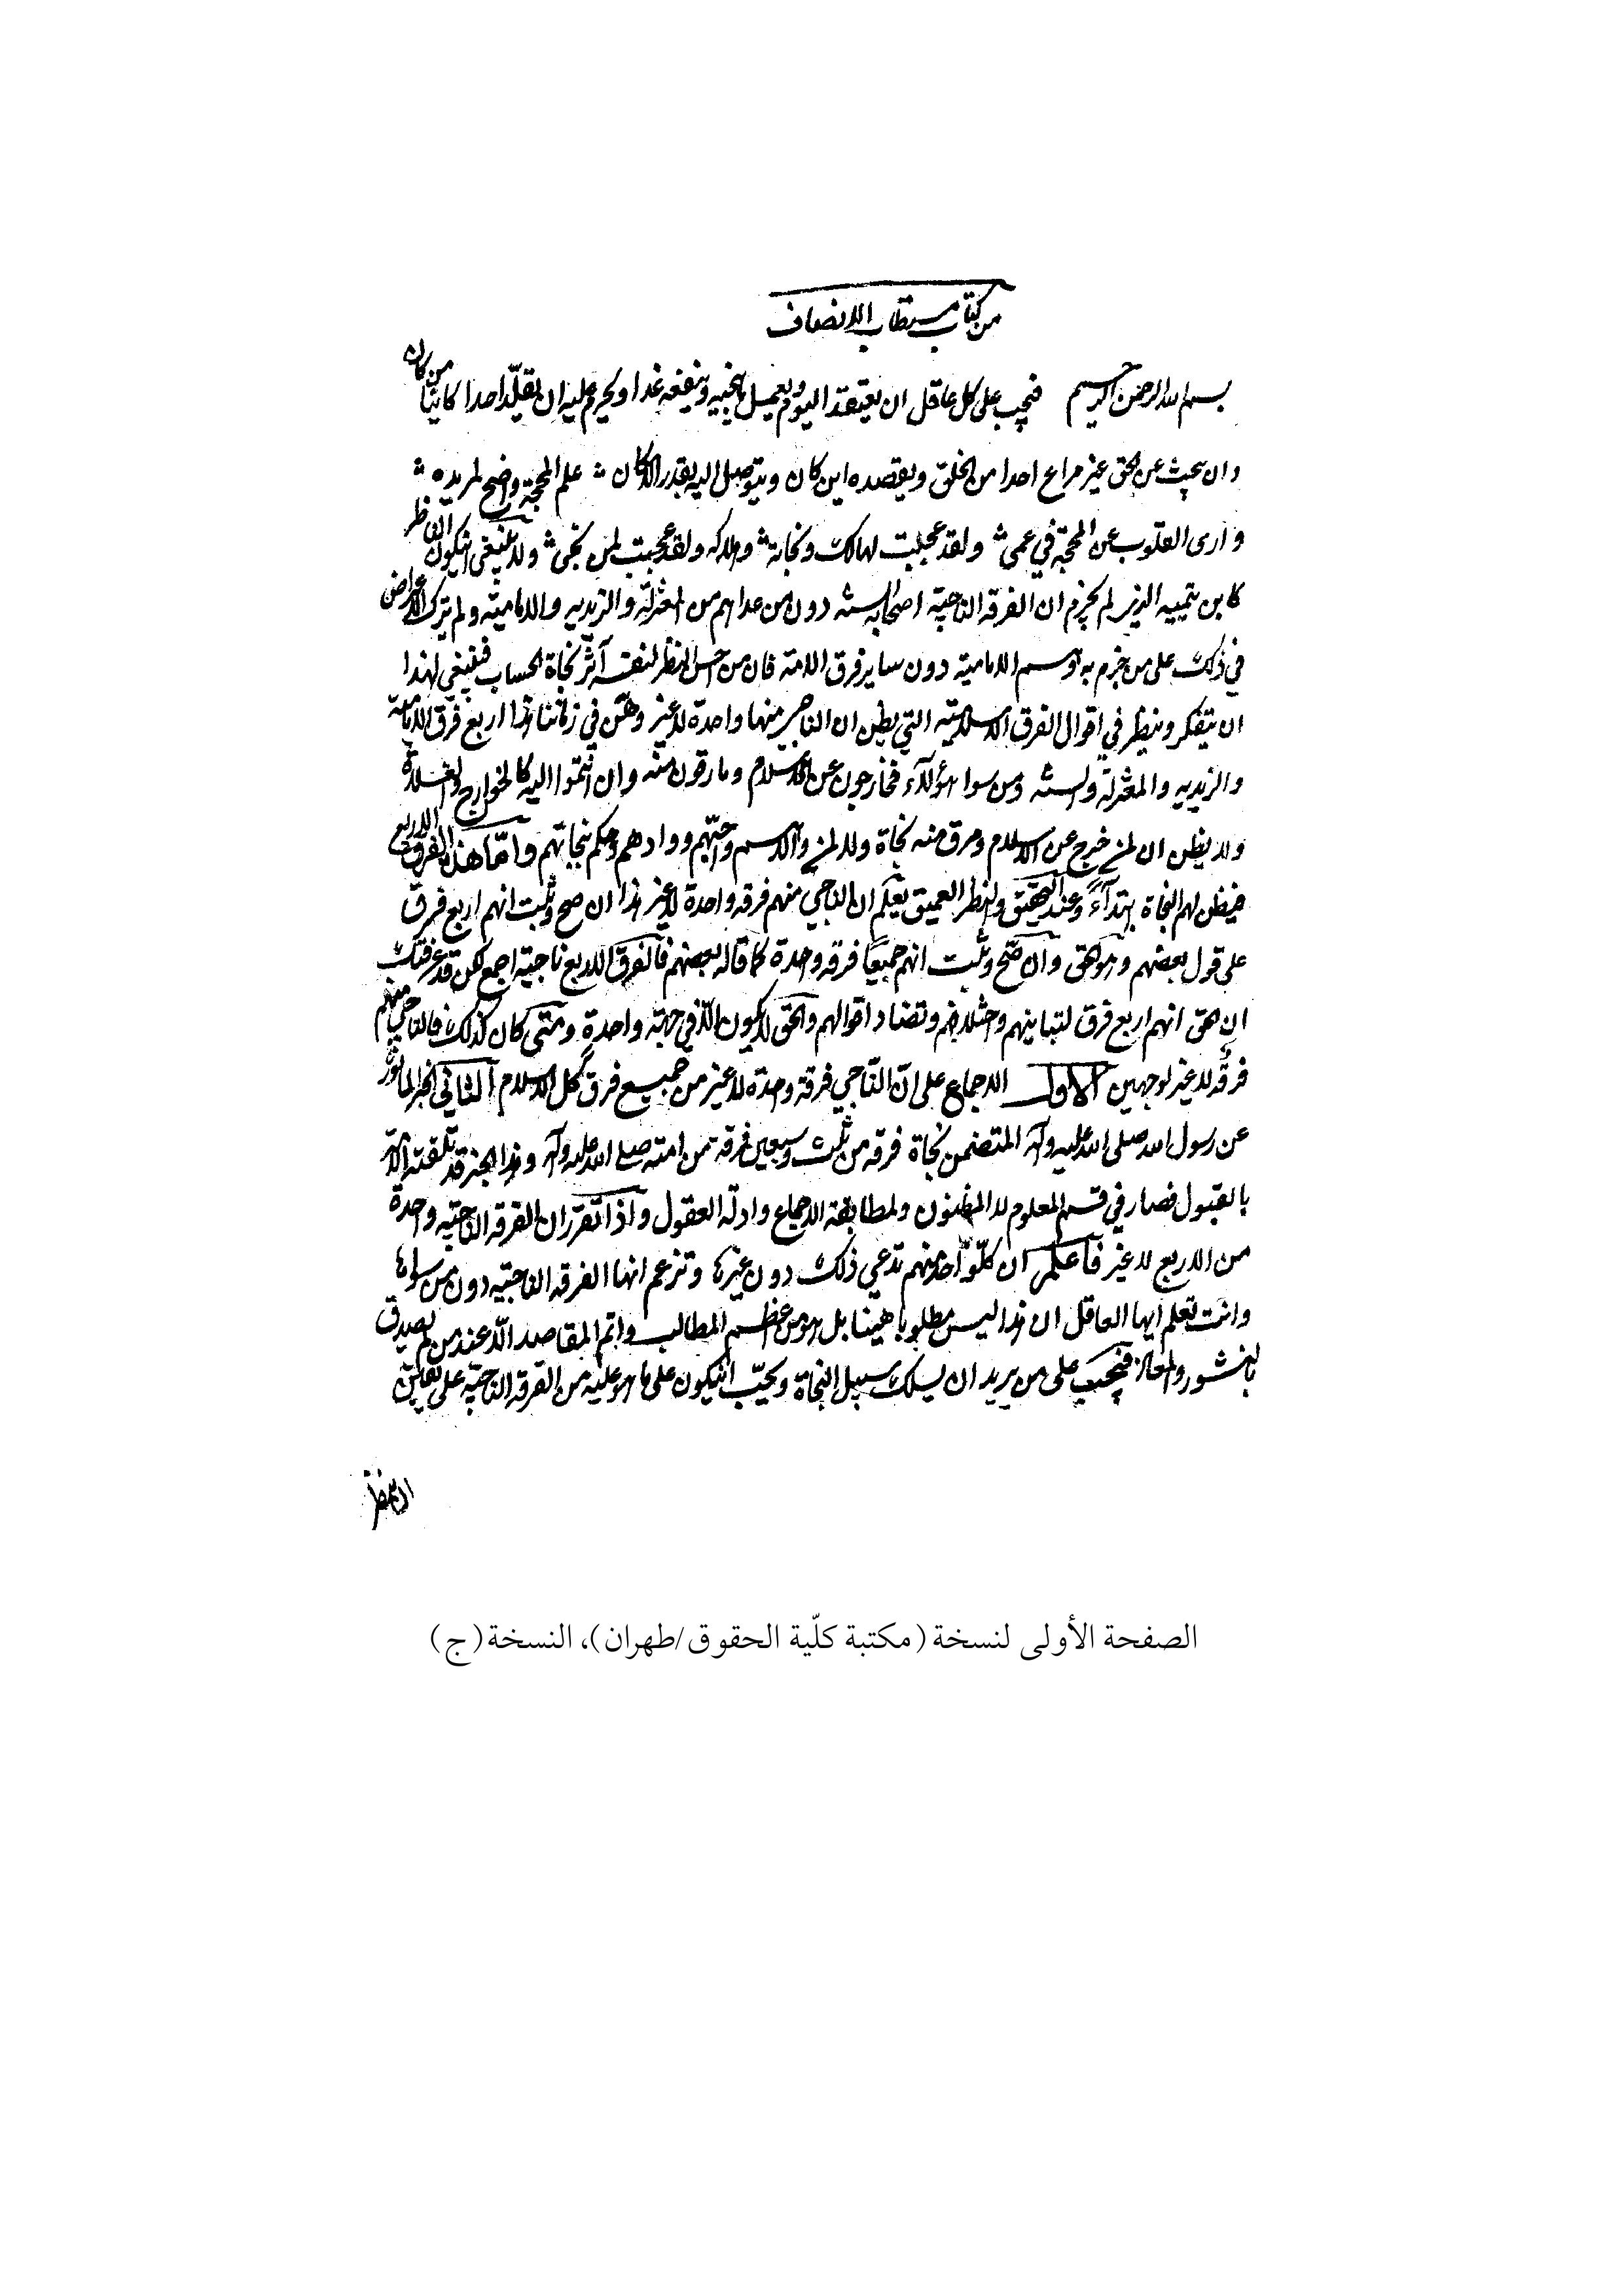 من كتاب مستطاب الانصاف
بسم الله الرحمن الرحيم فيجب على كل عاقل ان يعتقد اليوم ويعمل ما ينجيه وينفعه غدا ويحرم عليه ان يقلد احدا كائنا من كان
وان يبحث عن الحق غير مراع احدا من الخلق ويقصده اين كان ويتوصل اليه بقدر الامكان علم المحجة واضح لمريده
وارى القلوب عن المحجة في عمى ولقد عجبت لهالك ونجاته ولقد عجبت لمن نجى ولا ينبغي ان يكون الناظر
كابن تيميه الذي لم يجزم ان الفرقه الناجية اصحابه السنه دون من عداهم من المعتزلة والزيديه والاماميه ولم يترك الاعتراض
في ذلك على من جزم به وسم الامامية دون ساير فرق الامة فان من احسن النظر لنفسه آثر نجاة الحساب فينبغي لهذا
ان يتفكر وينظر في اقوال الفرق الاسلاميه التي يظن ان الناجي منها واحدة لا غير وهي في زماننا هذا اربع فرق الامامية
والزيديه والمعتزلة والسنه ومن سوا هؤلآء فخارجون عن الاسلام ومارقون منه وان انتموا اليه كالخوارج والغلاة
ولا يظن ان لمن خرج عن الاسلام ومرق منه نجاة ولا لمن والاهم واحبهم ووادهم وحكم بنجاتهم واما هذه الفرق الاربع
فيظن لهم النجاة ابتدآءً وعند التحقيق والنظر العميق يعلم ان الناجي منهم فرقه واحدة لا غير هذا ان صح وثبت انهم اربع فرق
على قول بعضهم وهو الحق وان صح وثبت انهم جميعا فرقه واحدة كما قاله بعضهم فالفرق الاربع ناجية اجمع لكن قد عرفتك
ان الحق انهم اربع فرق لتباينهم واختلافهم وتضاد اقوالهم والحق لا يكون الا في جهة واحدة ومتى كان كذلك فالناجي منهم
فرقه لا غير لوجهين الاول الاجماع على ان الناجي فرقة واحدة لا غير من جميع فرق كل الاسلام الثاني الخبر الماثور
عن رسول الله صلى الله عليه وآله المتضمن نجاة فرقه من ثلث وسبعين فرقه من امته صلى الله عليه وآله وهذا الخبر قد تلقته الامة
بالقبول فصار في قسم المعلوم لا المظنون ولمطابقة الاجماع وادلة العقول واذا تقرر ان الفرقه الناجيه واحدة
من الاربع لا غير فاعلم ان كل واحد منهم تدعي ذلك دون غيرها وتزعم انها الفرقه الناجيه دون من سواها
وانت تعلم ايها العاقل ان هذا ليس مطلوبا هينا بل هو من اعظم المطالب واهم المقاصد الا عند من لم يصدق
بالنشور والمعاد فيجب على من يريد ان يسلك سبيل النجاة ويحب ان يكون على ما هو عليه من الفرقه الناجية على يقين
الصفحة الأولى لنسخة (مكتبة كلّية الحقوق/طهران)، النسخة (ج)